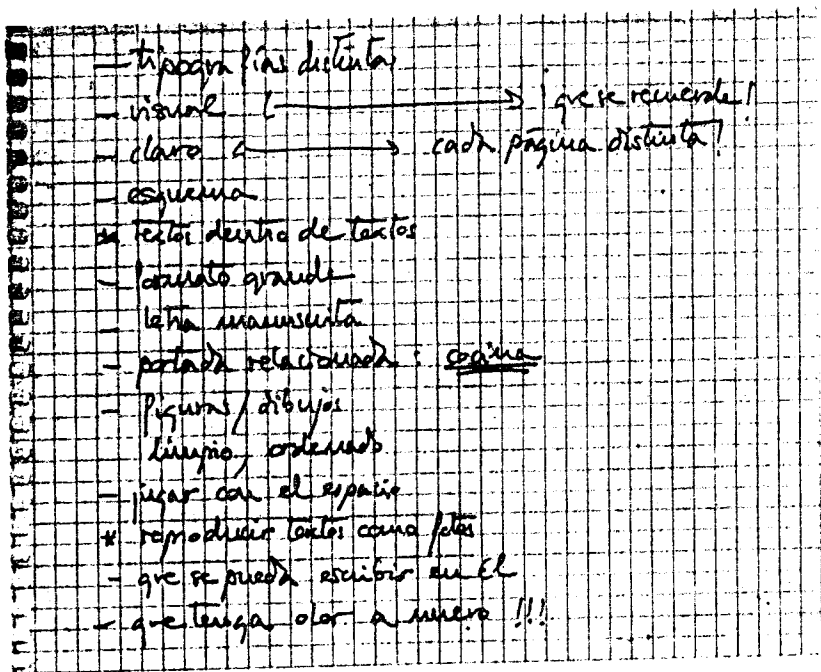 - tipografías distintas
- visual ⟷ ¡que se recuerde!
- claro ⟷ cada página distinta!
- esquema
* textos dentro de textos
- formato grande
- letra manuscrita
- portada relacionada: cocina
- figuras/dibujos
limpio, ordenado
- jugar con el espacio
* reproducir textos como fotos
- que se pueda escribir en él
- que tenga olor a nuevo !!!